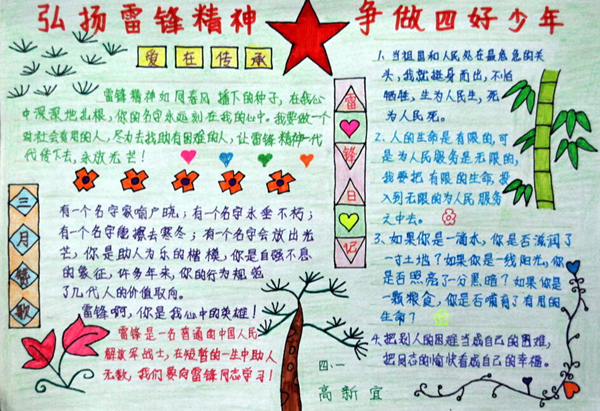 弘扬雷锋精神 争做四好少年
爱在传承
雷锋精神如同春风播下的种子，在我心
中深深地扎根，你的名字永远刻在我的心中。我要做一个
对社会有用的人，尽力去找助有困难的人，让雷锋精神一代
代传下去，永放光芒！
三月赞歌
有一个名字家喻户晓；有一个名字永垂不朽；
有一个名字能撼去寒冬；有一个名字会放出光
芒，你是助人为乐的楷模，你是自强不息
的象征，许多年来，你的行为规范
了几代人的价值取向。
雷锋啊，你是我心中的英雄！
雷锋是一名普通的中国人民
解放军战士，在短暂的一生中助人
无数，我们要向雷锋同志学习！
雷锋日记
1、当祖国和人民处在最危急的关
头，我就挺身而出，不怕
牺牲，生为人民生，死
为人民死。
2、人的生命是有限的，可
是为人民服务是无限的，
我要把有限的生命，投
入到无限的为人民服务
之中去。
3、如果你是一滴水，你是否滋润了
一寸土地？如果你是一线阳光，你是
否照亮了一分黑暗？如果你是
一颗粮食，你是否哺育了有用的
生命？
4、把别人的困难当成自己的困难，
把同志的愉快看成自己的幸福。
四、一
高新宜